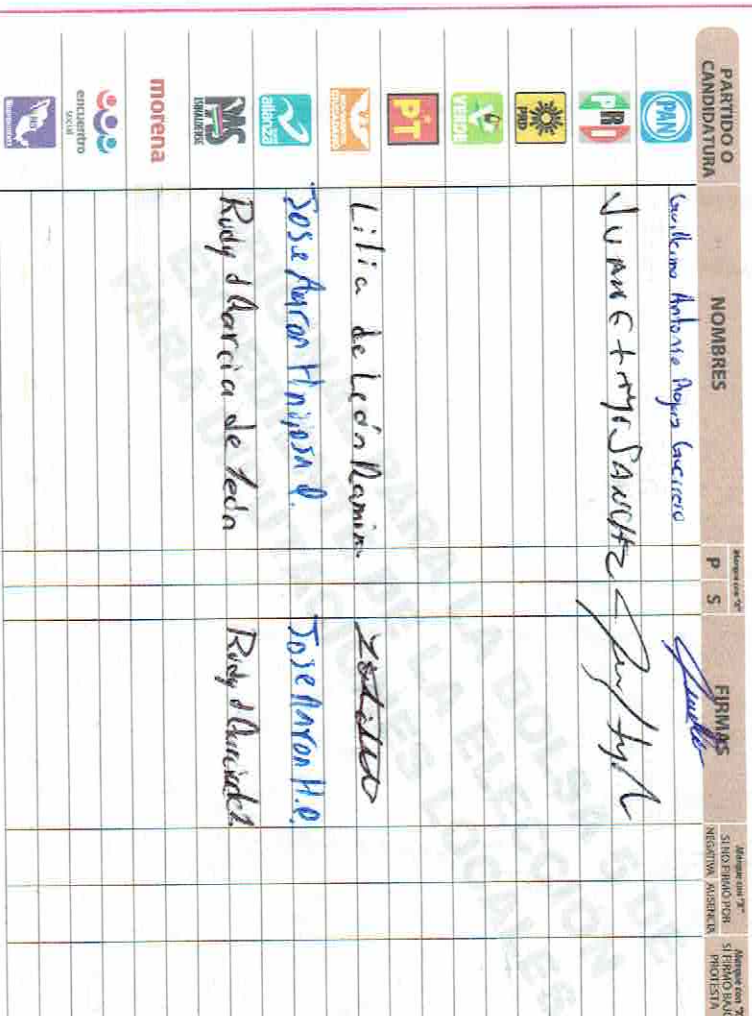 PARTIDO O
CANDIDATURA
NOMBRES
Marque con "X"
P S
FIRMAS
Marque con "X"
SI NO FIRMÓ POR
NEGATIVA AUSENCIA
Marque con "X"
SI FIRMÓ BAJO
PROTESTA
PAN
Guillermo Antonio Guerrero
PRI
Juan SANCHZ
PRD
VERDE
PT
MOVIMIENTO
CIUDADANO
Lilia de León Ramirez
alianza
Jose Aaron Hinojosa P.
Jose Aaron H.P.
PMS
Rudy J Garcia de León
Rudy J Garcia de L
morena
encuentro
social
PARA LA BOLSA 5 DE
EXPEDIENTE DE LA ELECCIÓN
PARA DIPUTACIONES LOCALES